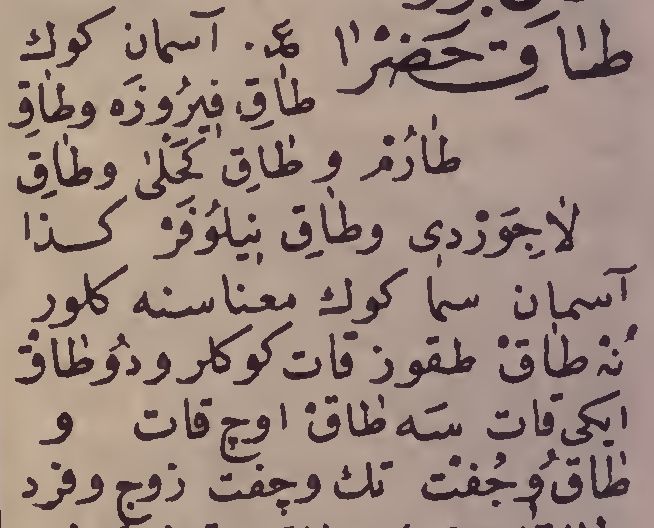 طاقِ حَضْرَا عم. آسمان كوك
طاقِ فِيرُوزَه وطاقِ
طارُم و طاقِ كُحَلىٰ وطاقِ
لاجِوَرْدى وطاقِ نِيلُوفَرْ كذا
آسمان سما كوك معناسنه كلور
نُه طاقْ طقوز قات كوكلر ودُو طاقْ
ايكى قات سَه طاقْ اوچ قات و
طاقْ وُجُفْتْ تك وچفت زوج وفرد